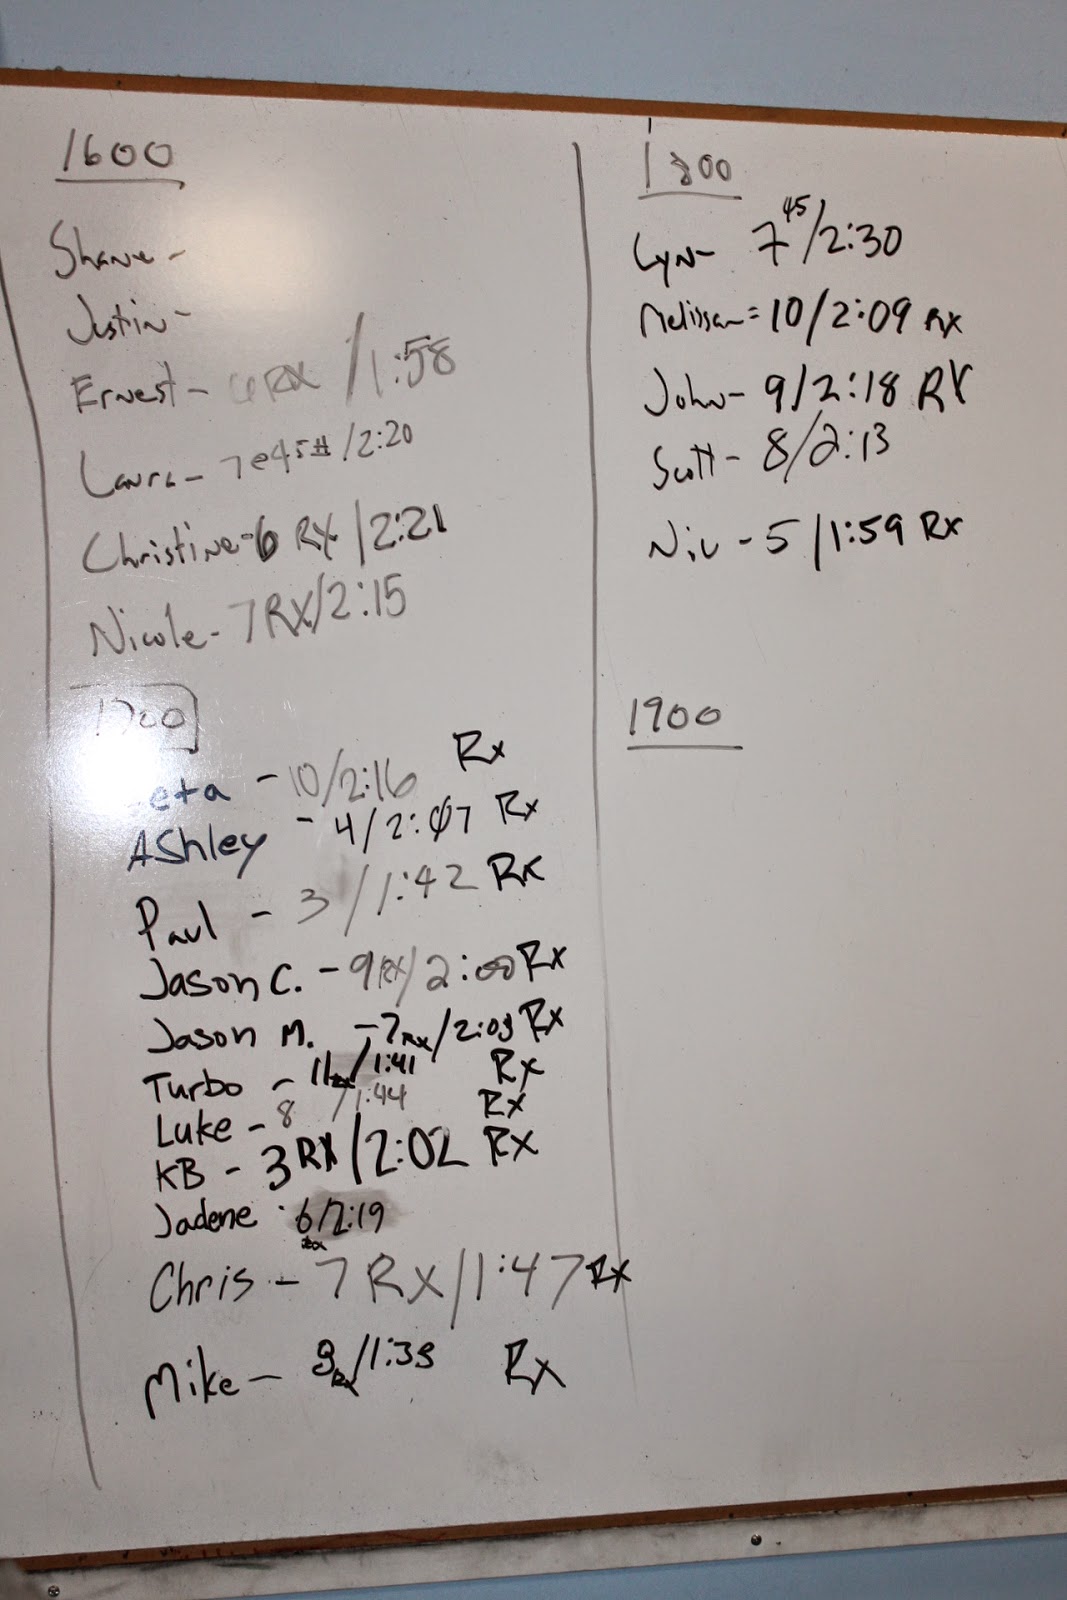 1600
Shane -
Justin -
Ernest - 6 RX /1:58
Laura - 7@45# /2:20
Christine - 6 RX /2:21
Nicole - 7 RX/2:15
1700
eta - 10/2:16 Rx
Ashley - 4/2:07 Rx
Paul - 3 /1:42 Rx
Jason C. - 9 RX/2:00 Rx
Jason M. - 7 RX/2:03 Rx
Turbo - 11 /1:41 Rx
Luke - 8 /1:44 Rx
KB - 3 RX /2:02 Rx
Jadene 6/2:19
Chris - 7 Rx/1:47 Rx
Mike - Rx /1:39 Rx
1800
Lyn - 7 45/2:30
Melissa = 10/2:09 Rx
John - 9/2:18 RX
Scott - 8/2:13
Niv - 5 /1:59 Rx
1900